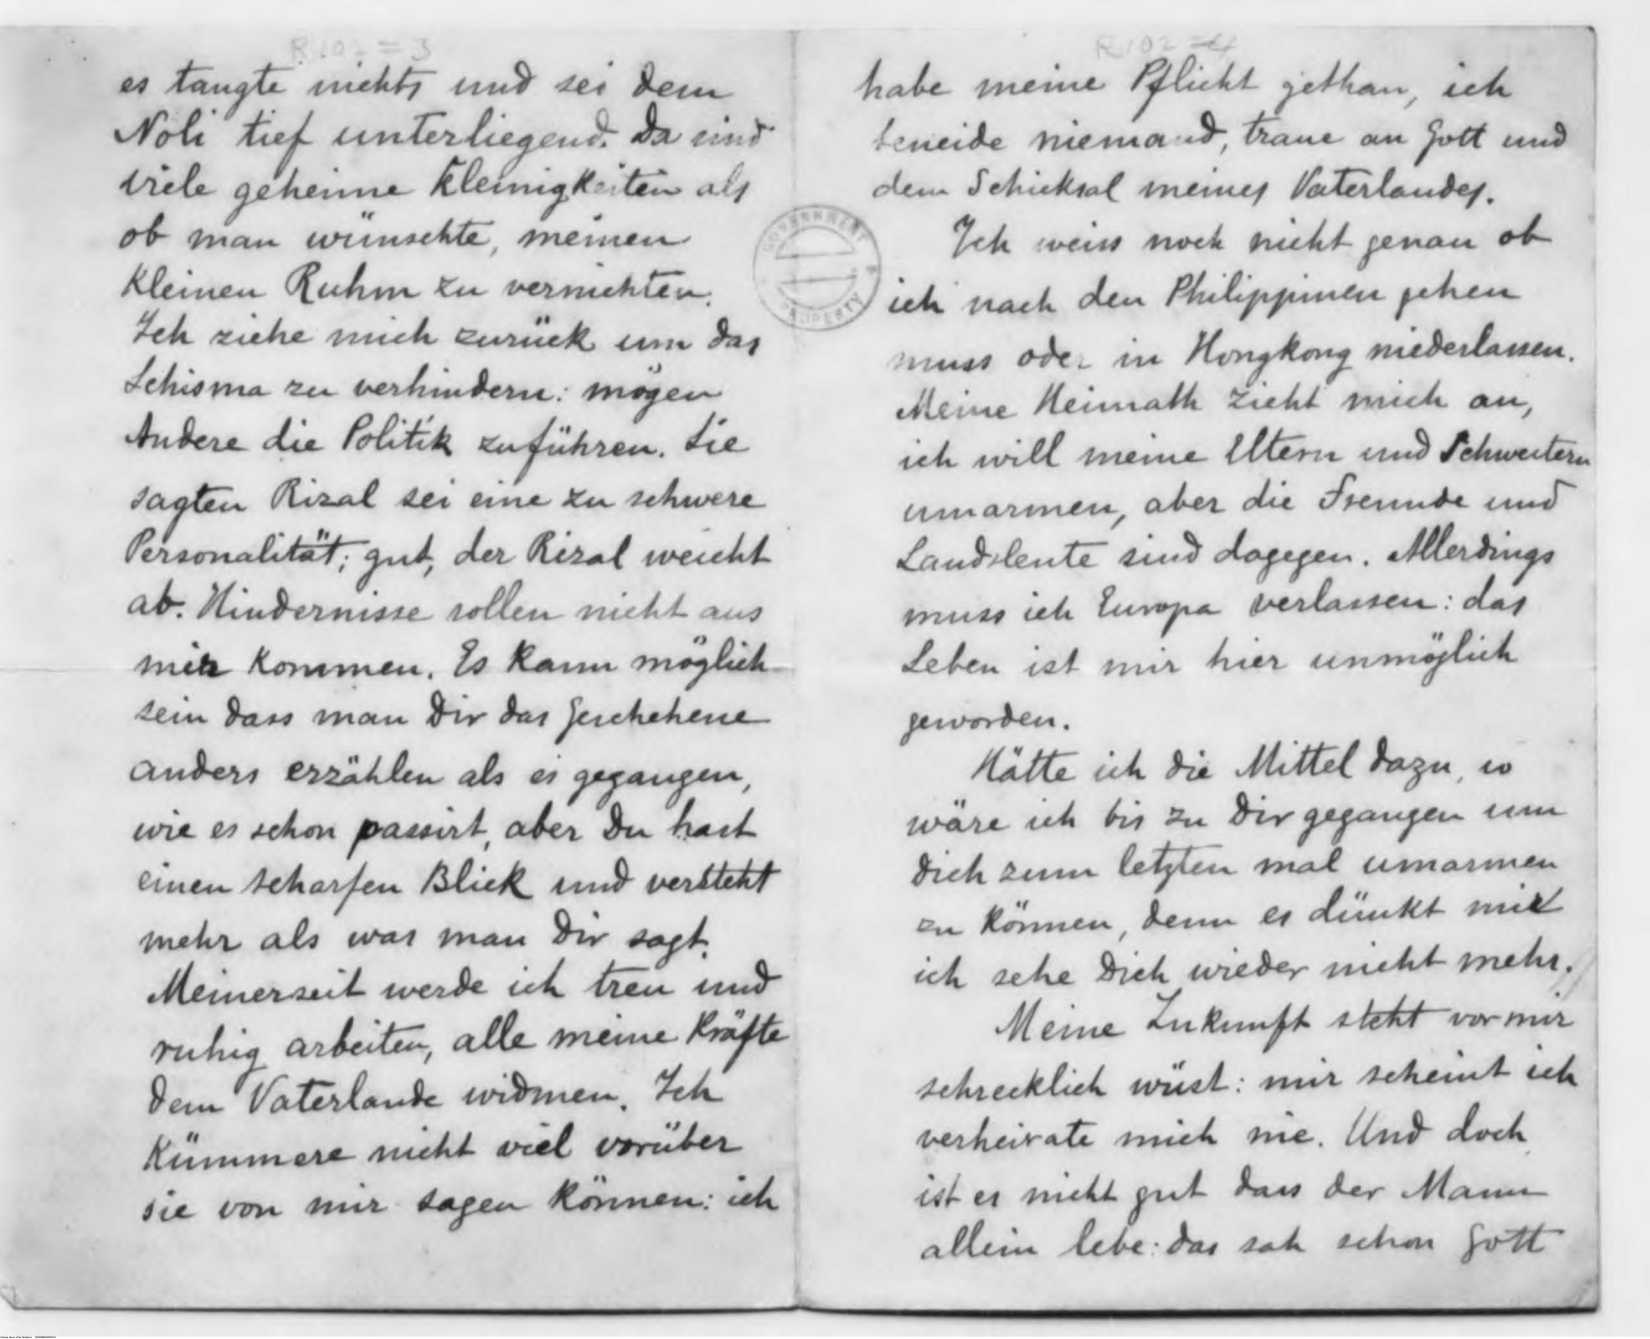 R102=3
es taugte nichts und sei dem
Noli tief unterliegend. Da sind
viele geheime Kleinigkeiten als
ob man wünschte, meinen
kleinen Ruhm zu vernichten.
Ich ziehe mich zurück um das
Schisma zu verhindern: mögen
Andere die Politik zuführen. Sie
sagten Rizal sei eine zu schwere
Personalität; gut, der Rizal weicht
ab. Hindernisse sollen nicht aus
mir kommen. Es kann möglich
sein dass man Dir das Geschehene
anders erzählen als es gegangen,
wie es schon passirt, aber Du hast
einen scharfen Blick und versteht
mehr als was man Dir sagt.
Meinerseit werde ich treu und
ruhig arbeiten, alle meine Kräfte
dem Vaterlande widmen. Ich
kümmere nicht viel vorüber
sie von mir sagen können: ich
R102=4
habe meine Pflicht gethan, ich
beneide niemand, traue an Gott und
dem Schicksal meines Vaterlandes.
Ich weiss noch nicht genau ob
ich nach den Philippinen gehen
muss oder in Hongkong niederlassen.
Meine Heimath zieht mich an,
ich will meine Eltern und Schwestern
umarmen, aber die Freunde und
Landsleute sind dagegen. Allerdings
muss ich Europa verlassen: das
Leben ist mir hier unmöglich
geworden.
Hätte ich die Mittel dazu, so
wäre ich bis zu Dir gegangen um
Dich zum letzten mal umarmen
zu können, denn es dünkt mir
ich sehe Dich wieder nicht mehr.
Meine Zukunft steht vor mir
schrecklich wüst: mir scheint ich
verheirate mich nie. Und doch
ist es nicht gut dass der Mann
allein lebe: das sah schon Gott
GOVERNMENT
PROPERTY